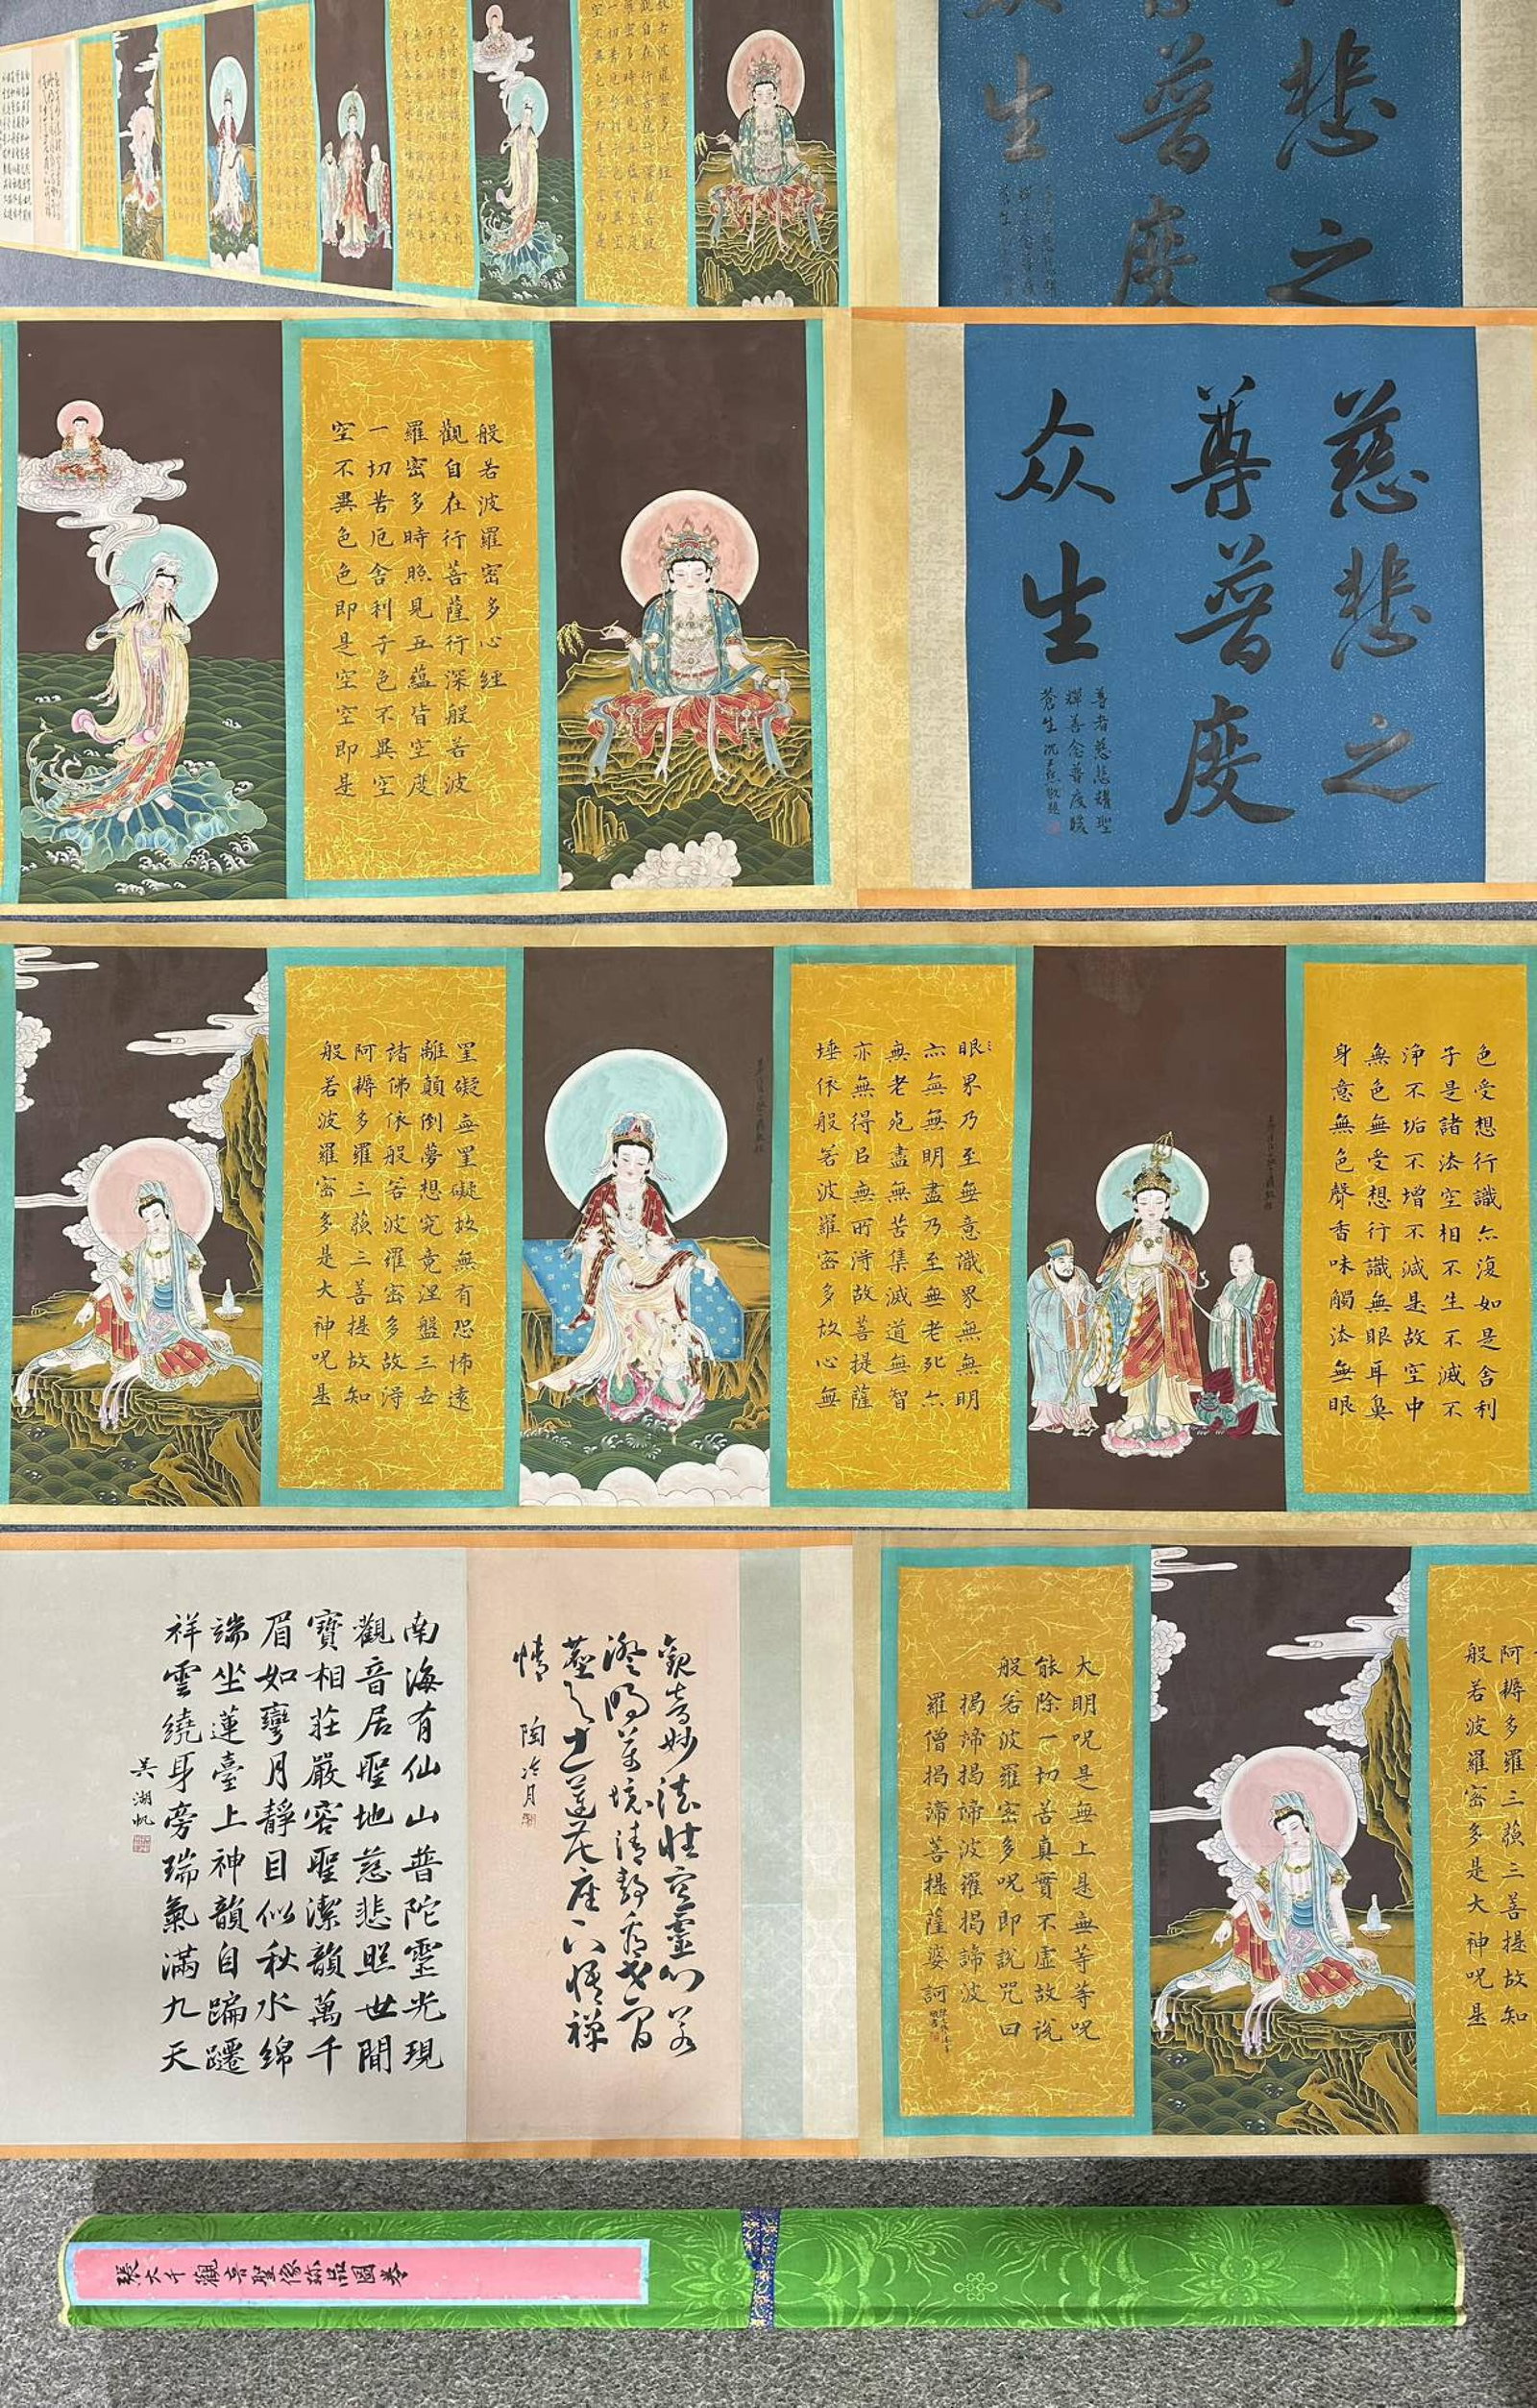 慈悲之
尊普度
众生
善者慈悲耀聖
輝善念普度暖
蒼生沈
般若波羅密多心經
觀自在行菩薩行深般若波
羅密多時照見五蘊皆空度
一切苦厄舍利子色不異空
空不異色色即是空空即是
色受想行識亦復如是舍利
子是諸法空相不生不滅不
淨不垢不增不減是故空中
無色無受想行識無眼耳鼻
身意無色聲香味觸法無眼
眼界乃至無意識界無無明
亦無無明盡乃至無老死亦
無老死盡無苦集滅道無智
亦無得㠯無所得故菩提薩
埵依般若波羅密多故心無
罣礙無罣礙故無有恐怖遠
離顛倒夢想究竟涅盤三世
諸佛依般若波羅密多故得
阿耨多羅三藐三菩提故知
般若波羅密多是大神呪是
阿耨多羅三藐三菩提故知
般若波羅密多是大神呪是
大明呪是無上是無等等呪
能除一切苦真實不虛故說
般若波羅密多呪即說咒曰
揭諦揭諦波羅揭諦波
羅僧揭諦菩提薩婆訶
觀音妙法性空靈心若
澄明萬境清靜看世間
塵之土蓮花座下悟禪
情 陶冷月
南海有仙山普陀靈光現
觀音居聖地慈悲照世間
寶相莊嚴容聖潔韻萬千
眉如彎月靜目似秋水綿
端坐蓮臺上神韻自蹁躚
祥雲繞身旁瑞氣滿九天
吴湖帆
張大千觀音聖像珎品圖卷